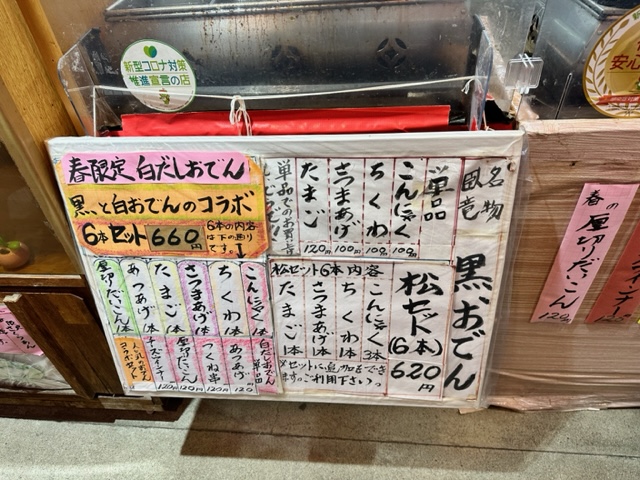 新型コロナ対策
推進宣言の店
安心
春限定 白だしおでん
黒と白おでんのコラボ
6本セット 660円
6本の内容
は下の通り
です。
こんにゃく 1本
ちくわ 1本
さつまあげ 1本
たまご 1本
あつあげ 1本
厚切りだいこん 1本
白だしおでん
単品
あつあげ 120
ちくわ串 120円
厚切りだいこん 120円
チーズインナー 120円
名物
黒おでん
単品
こんにゃく 100円
ちくわ 100円
さつまあげ 100円
たまご 120円
単品でのお買い
松セット
(6本)
620円
松セット6本内容
こんにゃく 3本
ちくわ 1本
さつまあげ 1本
たまご 1本
※セットに追加もでき
ますのご利用下さい。
春の
厚切りだいこん
120円